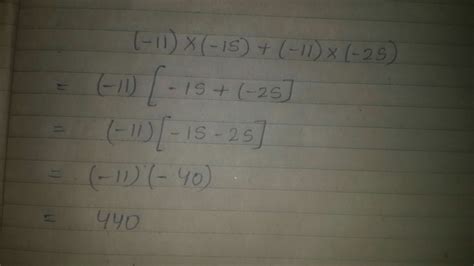 (-11) × (-15) + (-11) × (-25)
= (-11) [ -15 + (-25]
= (-11) [ -15 - 25 ]
= (-11) (-40)
= 440